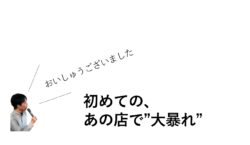 おいしゅうございました
初めての、
あの店で”大暴れ”